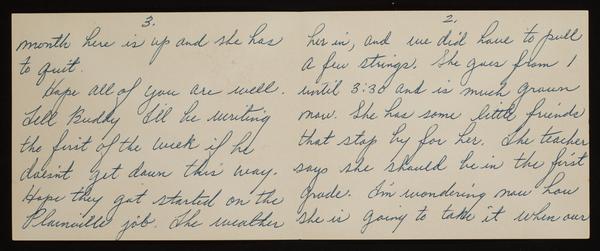 2.
her in, and we did have to pull
a few strings. She goes from 1
until 3:30 and is much grown
now. She has some little friends
that stop by for her. The teacher
says she should be in the first
grade. I'm wondering now how
she is going to take it when our
3.
month here is up and she has
to quit.
Hope all of you are well.
Tell Buddy I'll be writing
the first of the week if he
doesn't get down this way.
Hope they got started on the
Plainville job. The weather